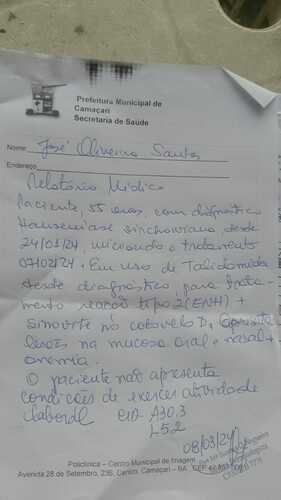 Prefeitura Municipal de
Camaçari
Secretaria de Saúde
Nome: José Oliveira Santos
Endereço
Relatório Médico
Paciente, 55 anos, com diagnóstico
Hanseníase virchowiana, desde
24/01/24, iniciando o tratamento
07/02/24. Em uso de Talidomida
desde diagnóstico, para trata-
mento reação tipo 2 (ENH) +
sinovite no cotovelo D, apresenta
lesões na mucosa oral e nasal +
anemia.
O paciente não apresenta
condições de exercer atividade
laboral CID A30.3
L52
08/03/24
Policlínica – Centro Municipal de Imagem
Avenida 28 de Setembro, 235, Centro, Camaçari – BA CEP